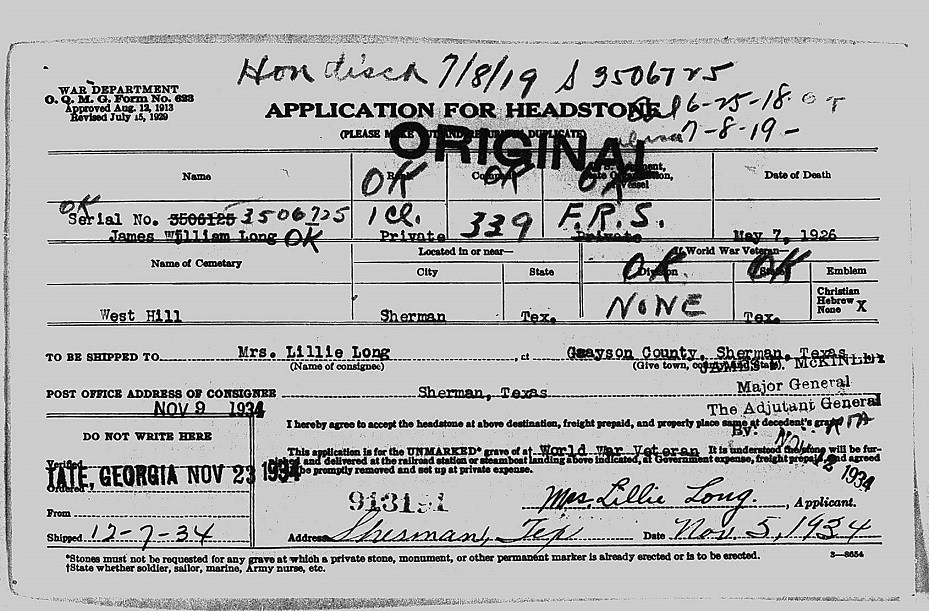 Hon disch 7/8/19 S 3506725
WAR DEPARTMENT
O. Q. M. G. Form No. 623
Approved Aug. 13, 1913
Revised July 15, 1929
APPLICATION FOR HEADSTONE
6-25-18
7-8-19-
(PLEASE MAKE OUT AND RETURN IN DUPLICATE)
ORIGINAL
Name
Rank
Company
Date of Death
OK OK OK
OK
Serial No. 3506125 3506725
James William Long OK
1 Cl.
Private
339
F.R.S.
Private
May 7, 1926
Name of Cemetery
Located in or near—
City
State
If World War Veteran—
Division
State
OK OK
Emblem
West Hill
Sherman
Tex.
NONE
Tex.
Christian
Hebrew
None X
TO BE SHIPPED TO Mrs. Lillie Long , at Grayson County, Sherman, Texas
(Name of consignee)
(Give town, county, and State)
JAMES F. McKINLEY
Major General
The Adjutant General
By:
NOV 12 1934
POST OFFICE ADDRESS OF CONSIGNEE Sherman, Texas
NOV 9 1934
I hereby agree to accept the headstone at above destination, freight prepaid, and properly place same at decedent's grave.
DO NOT WRITE HERE
This application is for the UNMARKED* grave of a† World War Veteran It is understood the stone will be fur-
nished and delivered at the railroad station or steamboat landing above indicated, at Government expense, freight prepaid, and agreed
to be promptly removed and set up at private expense.
Verified
TATE, GEORGIA NOV 23 1934
Ordered
913191
Mrs. Lillie Long. , Applicant.
From
Shipped 12-7-34
Address Sherman, Tex
Date Nov. 5, 1934
*Stones must not be requested for any grave at which a private stone, monument, or other permanent marker is already erected or is to be erected.
†State whether soldier, sailor, marine, Army nurse, etc.
3—8654